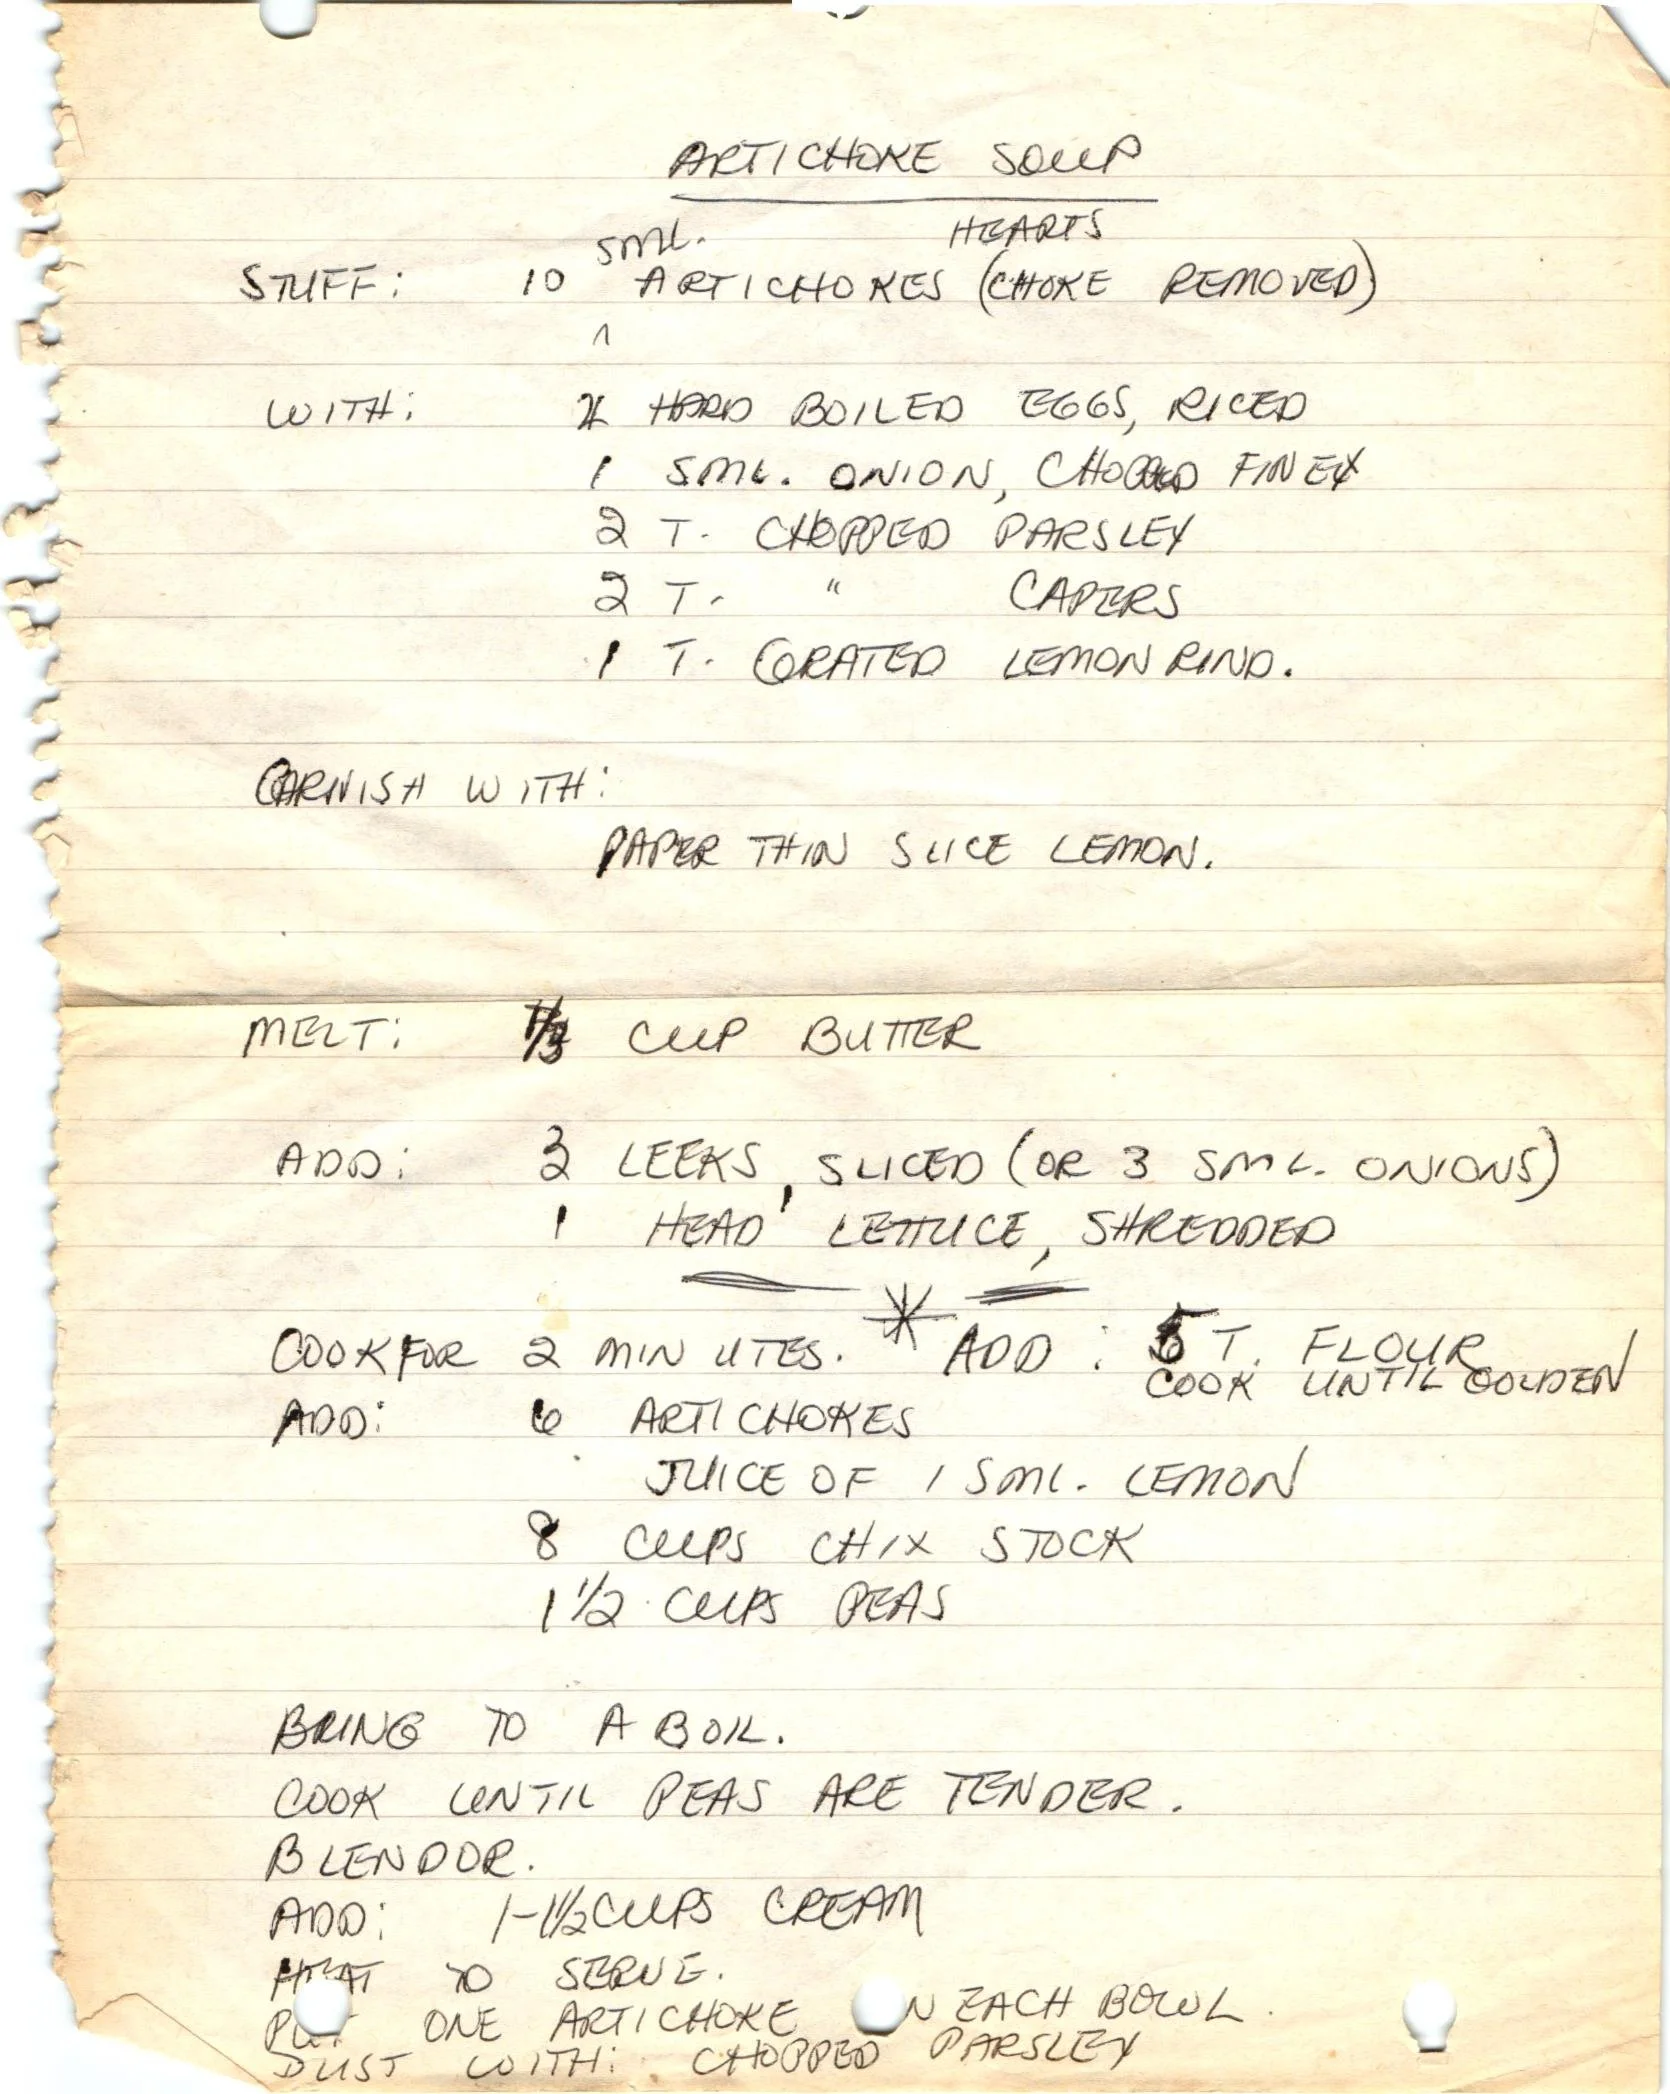 ARTICHOKE SOUP
SML. HEARTS
STUFF: 10 ARTICHOKES (CHOKE REMOVED)
^
WITH: HARD BOILED EGGS, RICED
1 SML. ONION, CHOPPED FINELY
2 T. CHOPPED PARSLEY
2 T. " CAPERS
1 T. GRATED LEMON RIND.
GARNISH WITH:
PAPER THIN SLICE LEMON.
MELT: 1/3 CUP BUTTER
ADD: 3 LEEKS, SLICED (OR 3 SML. ONIONS)
1 HEAD LETTUCE, SHREDDED
COOK FOR 2 MINUTES. * ADD: 5 T. FLOUR
COOK UNTIL GOLDEN
ADD: 6 ARTICHOKES
JUICE OF 1 SML. LEMON
8 CUPS CHIX STOCK
1 1/2 CUPS PEAS
BRING TO A BOIL.
COOK UNTIL PEAS ARE TENDER.
BLENDOR.
ADD: 1-1 1/2 CUPS CREAM
HEAT TO SERVE.
PUT ONE ARTICHOKE IN EACH BOWL.
DUST WITH: CHOPPED PARSLEY